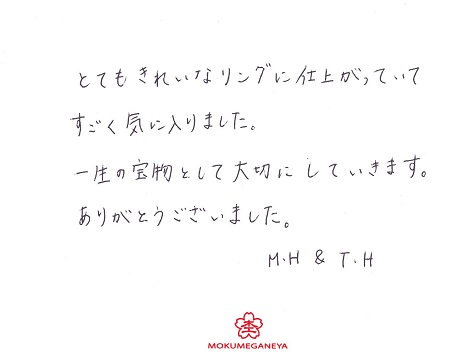 とてもきれいなリングに仕上がっていて
すごく気に入りました。
一生の宝物として大切にしていきます。
ありがとうございました。
M.H & T.H
MOKUMEGANEYA